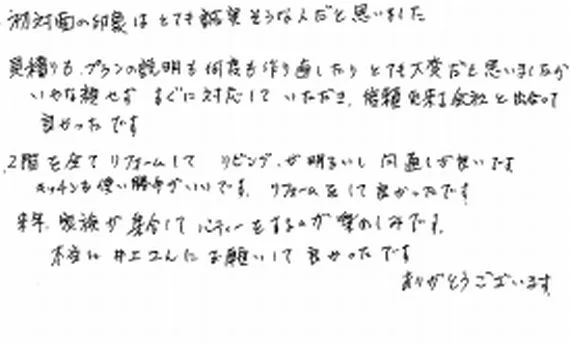 初対面の印象はとても誠実そうな人だと思いました
見積りも、プランの説明も何度も作り直したり とても大変だと思いましたが
いやな顔せず すぐに対応して いただき、信頼出来る会社と出会って
良かったです
2階を全てリフォームして リビングが明るいし 風通しが良いです
キッチンも使い勝手がいいです。リフォームをして良かったです
来年、家族が集合してパーティーをするのが楽しみです。
本当に井上さんにお願いして良かったです
ありがとうございます